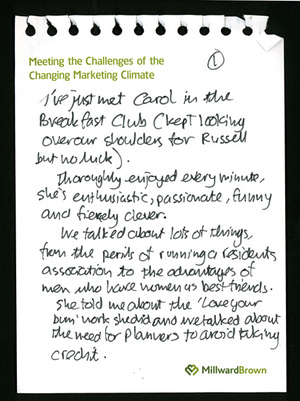 Meeting the Challenges of the
Changing Marketing Climate
1
I've just met Carol in the
Breakfast Club (kept looking
over our shoulders for Russell
but no luck).
Thoroughly enjoyed every minute,
she's enthusiastic, passionate, funny
and fiercely clever.
We talked about lots of things,
from the perils of running a residents
association to the advantages of
men who have women as best friends.
She told me about the 'Love your
bum' work she did and we talked about
the need for planners to avoid taking
credit.
MillwardBrown